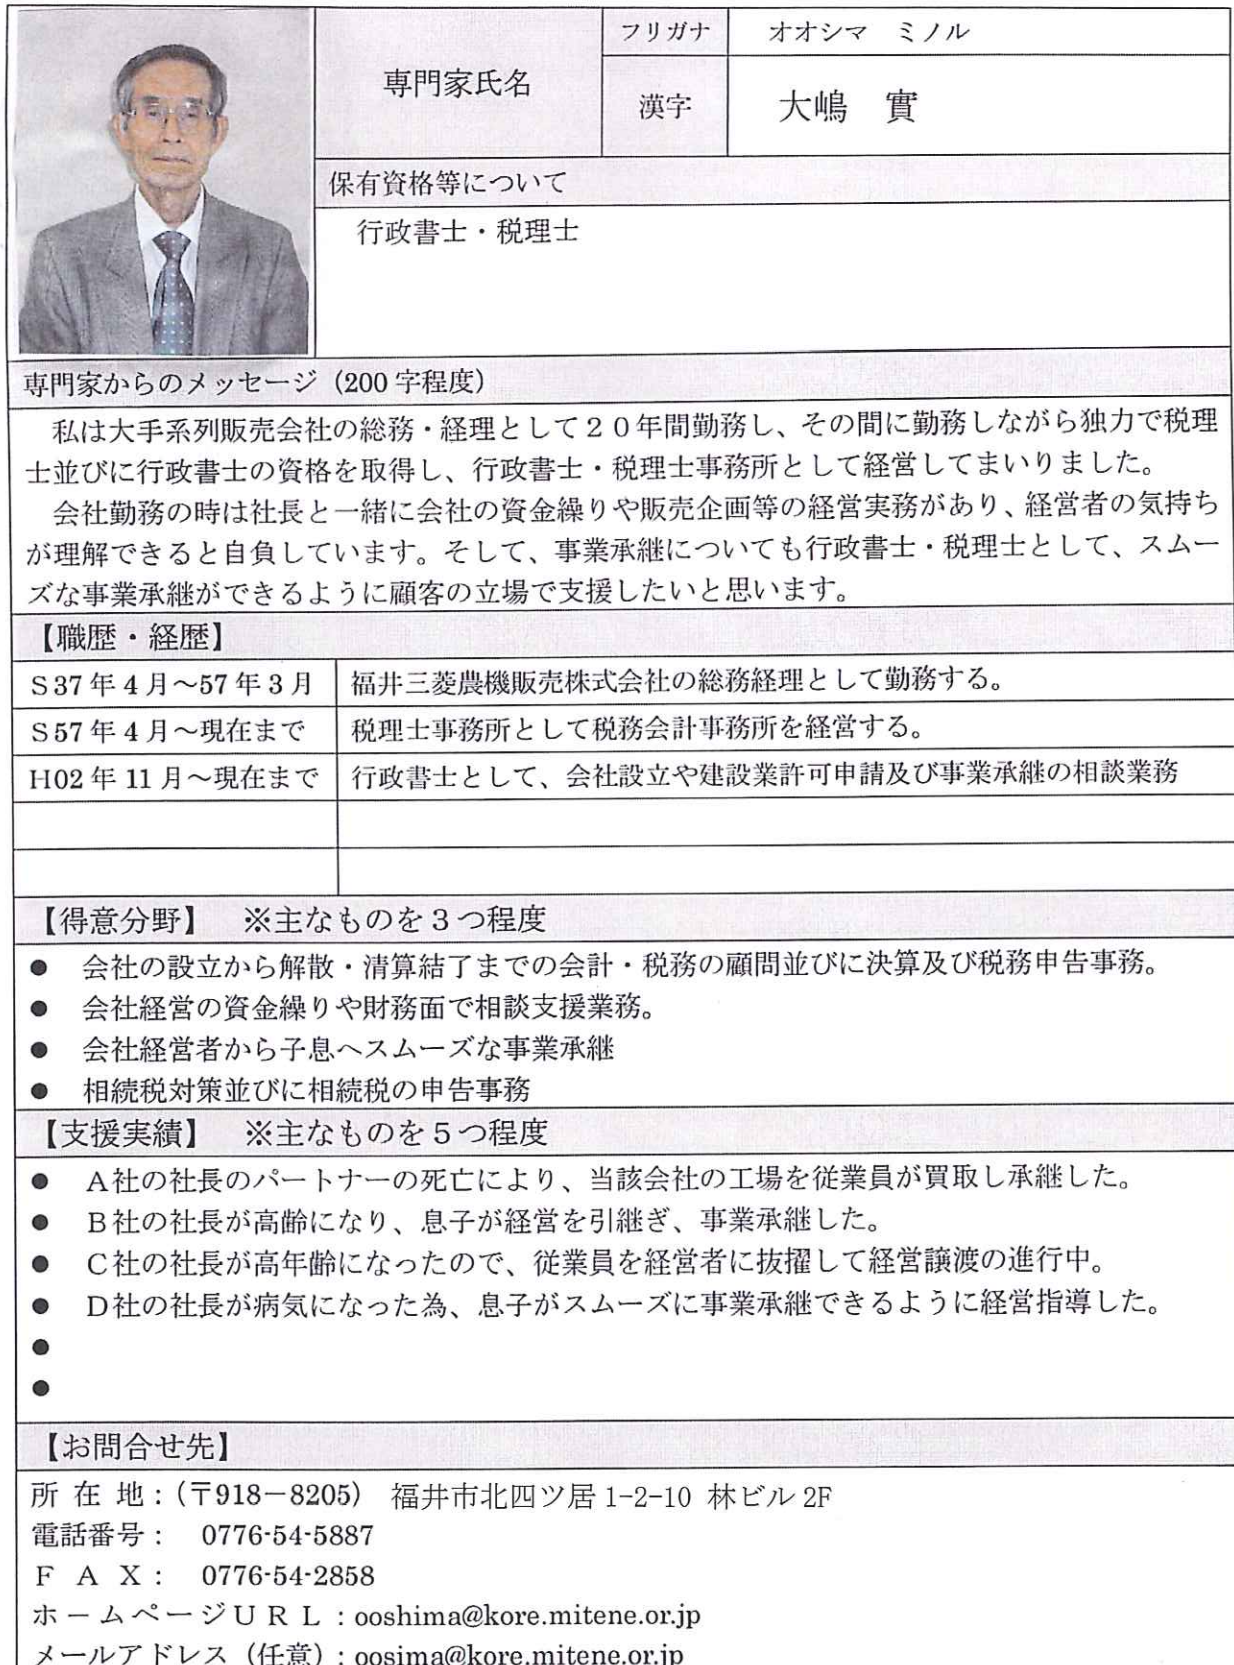 フリガナ オオシマ ミノル
専門家氏名
漢字 大嶋 實
保有資格等について
行政書士・税理士
専門家からのメッセージ（200字程度）
私は大手系列販売会社の総務・経理として２０年間勤務し、その間に勤務しながら独力で税理
士並びに行政書士の資格を取得し、行政書士・税理士事務所として経営してまいりました。
会社勤務の時は社長と一緒に会社の資金繰りや販売企画等の経営実務があり、経営者の気持ち
が理解できると自負しています。そして、事業承継についても行政書士・税理士として、スムー
ズな事業承継ができるように顧客の立場で支援したいと思います。
【職歴・経歴】
S37年4月～57年3月 福井三菱農機販売株式会社の総務経理として勤務する。
S57年4月～現在まで 税理士事務所として税務会計事務所を経営する。
H02年11月～現在まで 行政書士として、会社設立や建設業許可申請及び事業承継の相談業務
【得意分野】 ※主なものを３つ程度
● 会社の設立から解散・清算結了までの会計・税務の顧問並びに決算及び税務申告事務。
● 会社経営の資金繰りや財務面で相談支援業務。
● 会社経営者から子息へスムーズな事業承継
● 相続税対策並びに相続税の申告事務
【支援実績】 ※主なものを５つ程度
● A社の社長のパートナーの死亡により、当該会社の工場を従業員が買取し承継した。
● B社の社長が高齢になり、息子が経営を引継ぎ、事業承継した。
● C社の社長が高年齢になったので、従業員を経営者に抜擢して経営譲渡の進行中。
● D社の社長が病気になった為、息子がスムーズに事業承継できるように経営指導した。
●
●
【お問合せ先】
所 在 地：（〒918－8205） 福井市北四ツ居1-2-10 林ビル2F
電話番号： 0776-54-5887
F A X： 0776-54-2858
ホームページＵＲＬ：ooshima@kore.mitene.or.jp
メールアドレス（任意）：oosima@kore.mitene.or.jp